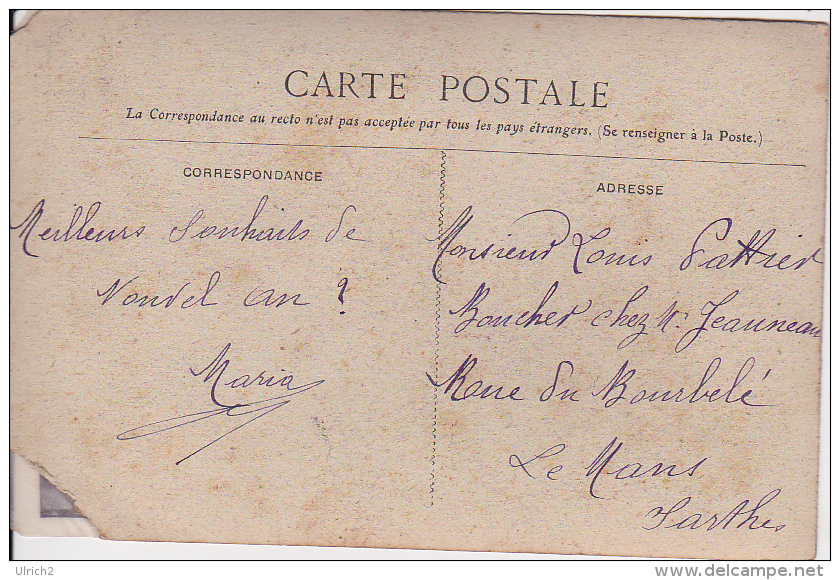 CARTE POSTALE
La Correspondance au recto n'est pas acceptée par tous les pays étrangers. (Se renseigner à la Poste.)
CORRESPONDANCE
Meilleurs Souhaits de
Nouvel an ?
Maria
ADRESSE
Monsieur Louis Pattier
Boucher chez Mr Jeauneau
Rue du Bourbelé
Le Mans
Sarthe
Ulrich2
http://www.delcampe.net